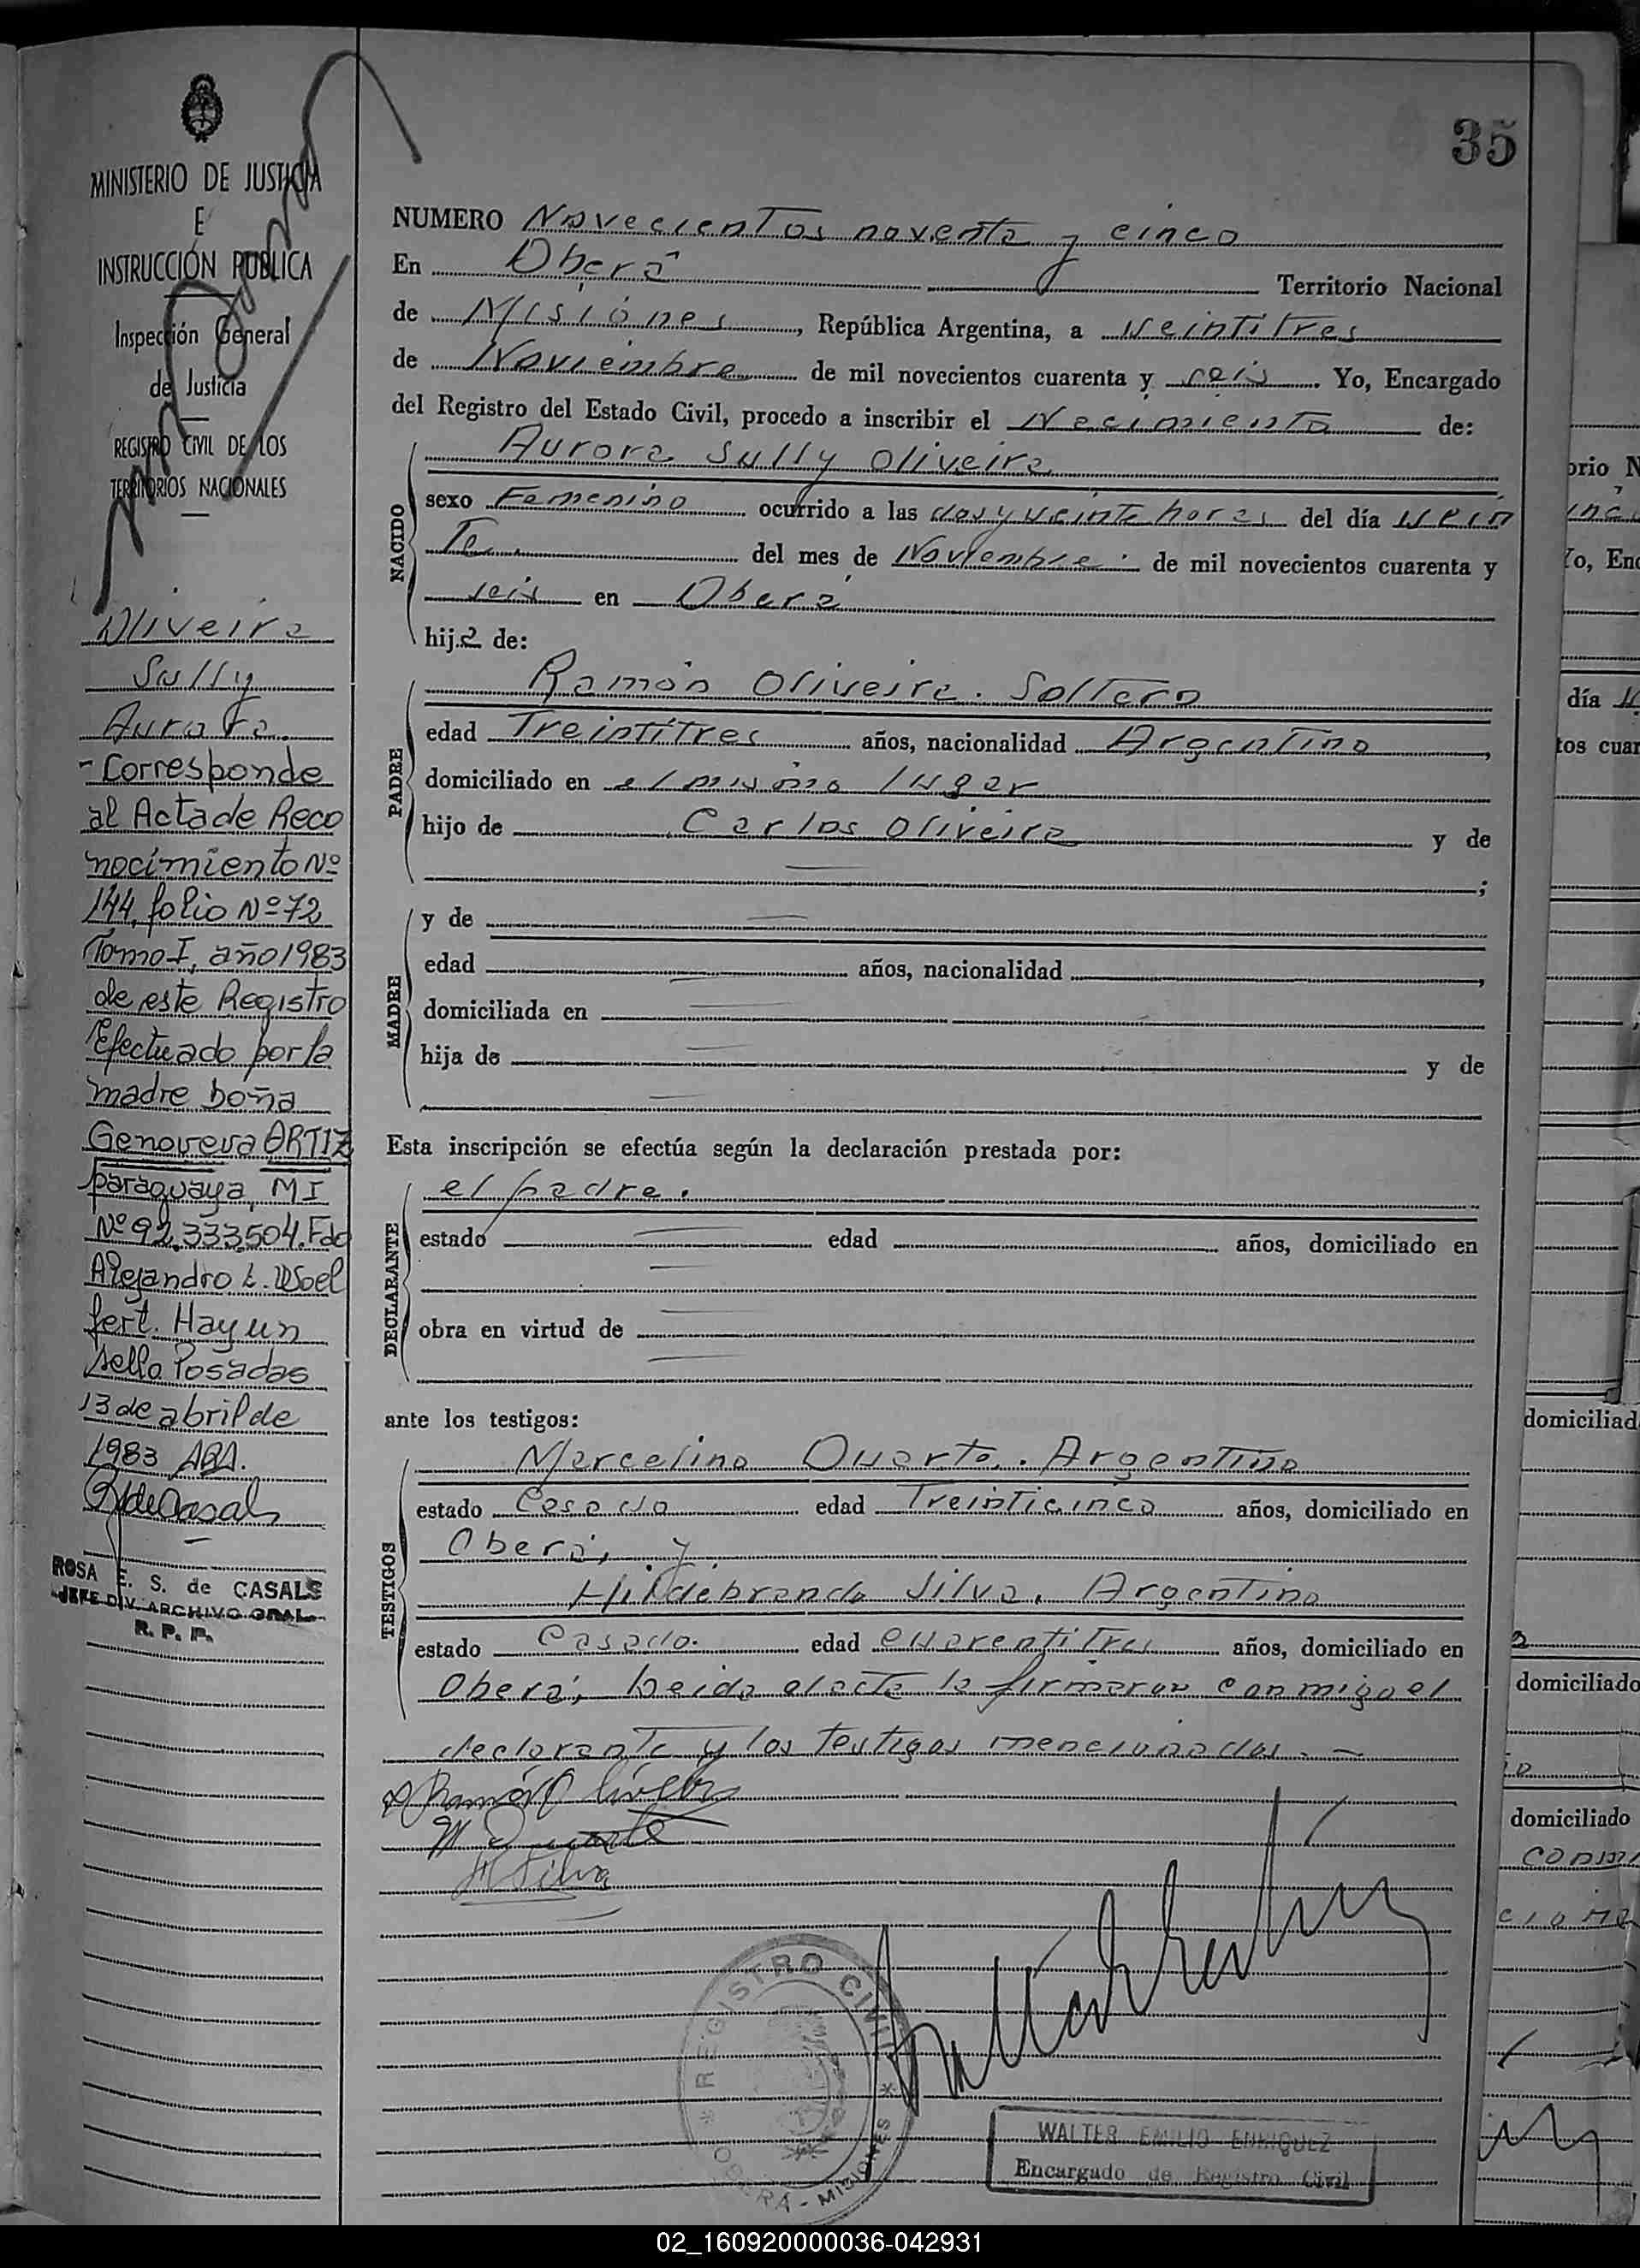 MINISTERIO DE JUSTICIA
E
INSTRUCCIÓN PUBLICA
Inspección General
de Justicia
REGISTRO CIVIL DE LOS
TERRITORIOS NACIONALES
Oliveira
Sully
Aurora.
- Corresponde
al Acta de Reco
nocimiento Nº
144, folio Nº 72
Tomo I, año 1983
de este Registro
Efectuado por la
madre Doña
Genoveva ORTIZ
paraguaya, MI
Nº 92.333.504. Fdo
Alejandro L. Woel
fert. Hay un
sello Posadas
13 de abril de
1983 ABA.
ROSA E. S. de CASALS
JEFE DIV. ARCHIVO GRAL.
R. P. P.
35
NUMERO Novecientos noventa y cinco
En Oberá Territorio Nacional
de Misiones, República Argentina, a Veintitres
de Noviembre de mil novecientos cuarenta y seis. Yo, Encargado
del Registro del Estado Civil, procedo a inscribir el Nacimiento de:
NACIDO
Aurora Sully Oliveira
sexo Femenino ocurrido a las dos y veinte horas del día Vein
te del mes de Noviembre de mil novecientos cuarenta y
seis en Oberá
hija de:
PADRE
Ramón Oliveira. Soltero
edad Treintitres años, nacionalidad Argentino,
domiciliado en el mismo lugar
hijo de Carlos Oliveira y de
;
MADRE
y de
edad años, nacionalidad ,
domiciliada en
hija de y de
Esta inscripción se efectúa según la declaración prestada por:
DECLARANTE
el padre.
estado edad años, domiciliado en
obra en virtud de
ante los testigos:
TESTIGOS
Marcelino Duarte. Argentino
estado Casado edad Treinticinco años, domiciliado en
Oberá, y
Hildebrando Silva, Argentino
estado Casado. edad cuarentitres años, domiciliado en
Oberá; Leida el acta la firmaron conmigo el
declarante y los testigos mencionados. -
Ramón Oliveira
M Duarte
H Silva
REGISTRO CIVIL
OBERA - MISIONES
WALTER EMILIO ENRIQUEZ
Encargado de Registro Civil
orio N
Yo, Enc
día
tos cuar
domiciliad
domiciliado
domiciliado
02_160920000036-042931